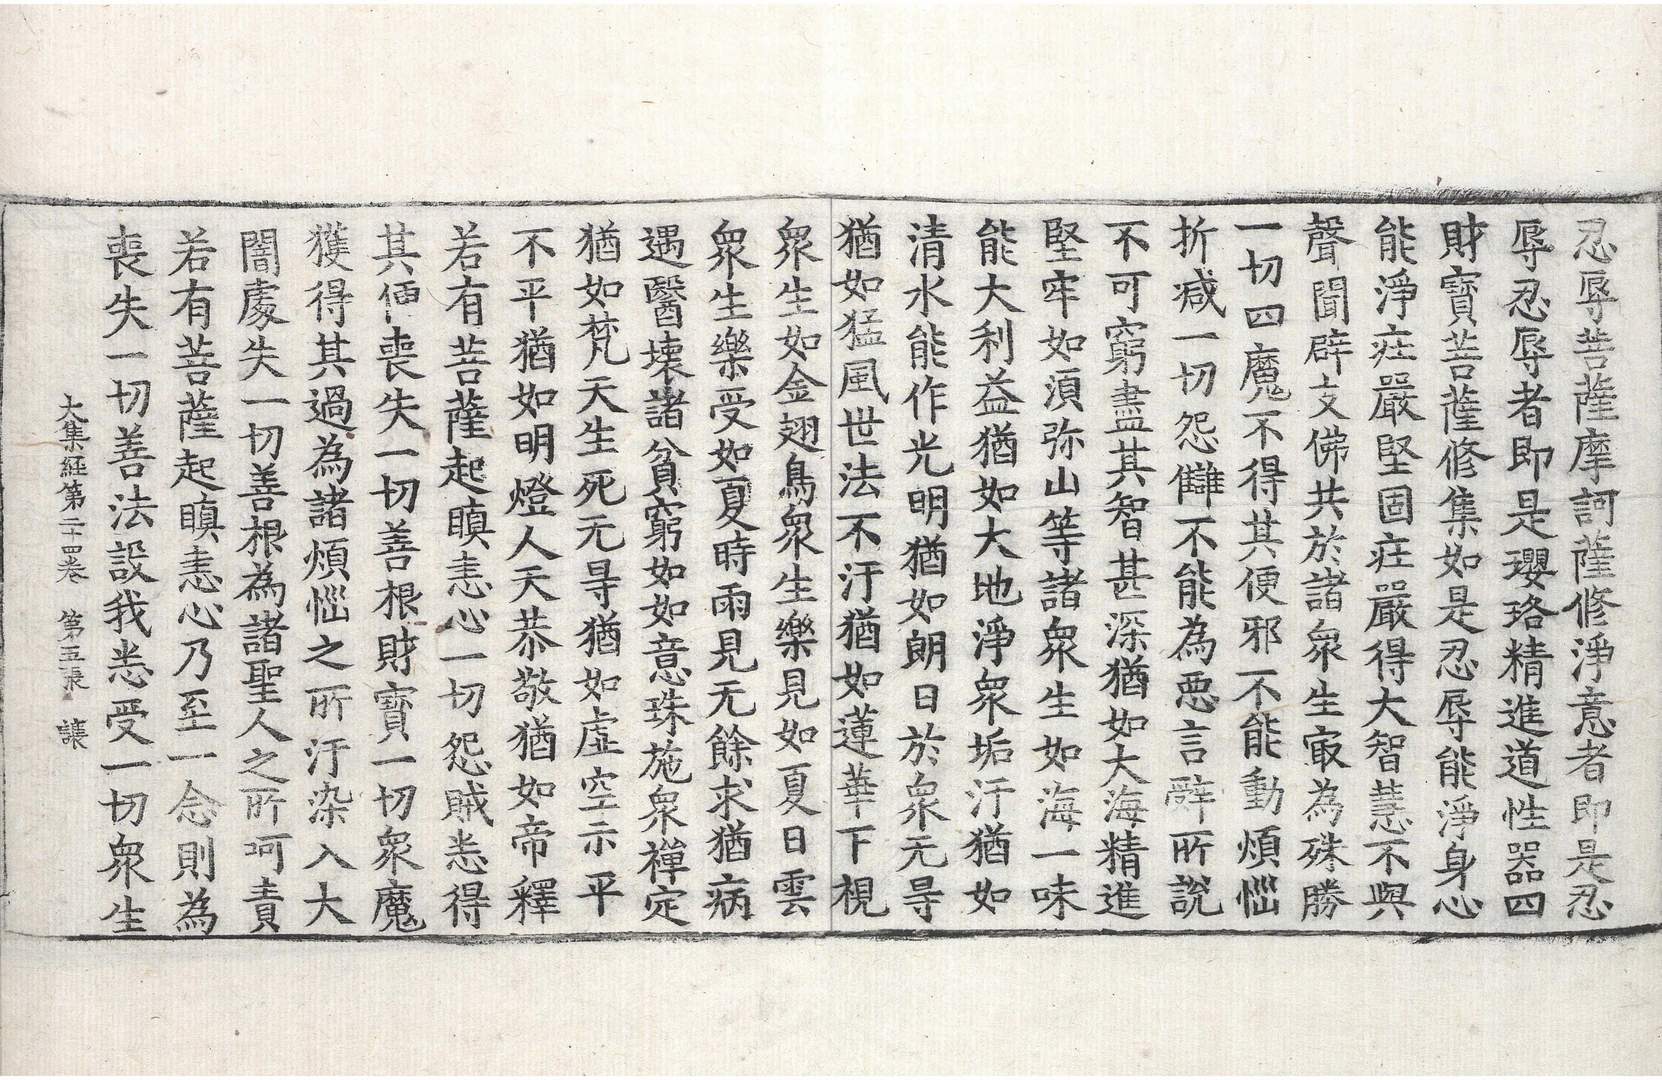 忍辱菩薩摩訶薩修淨意者即是忍
辱忍辱者即是瓔珞精進道性器四
財寶菩薩修集如是忍辱能淨身心
能淨疘嚴堅固疘嚴得大智慧不與
聲聞辟支佛共於諸衆生㝡為殊勝
一切四魔不得其便邪不能動煩惱
折減一切怨讎不能為惡言辭所說
不可窮盡其智甚深猶如大海精進
堅牢如須弥山等諸衆生如海一味
能大利益猶如大地淨衆垢汙猶如
清水能作光明猶如朗日於衆无㝵
猶如猛風世法不汙猶如蓮華下視
衆生如金翅鳥衆生樂見如夏日雲
衆生樂受如夏時雨見无餘求猶病
遇醫壞諸貧窮如如意珠施衆禪定
猶如梵天生死无㝵猶如虛空示平
不平猶如明燈人天恭敬猶如帝釋
若有菩薩起瞋恚心一切怨賊悉得
其便喪失一切善根財寶一切衆魔
獲得其過為諸煩惱之所汙染入大
闇處失一切善根為諸聖人之所呵責
若有菩薩起瞋恚心乃至一念則為
喪失一切善法設我悉受一切衆生
大集經第二十四卷　第五張　讓